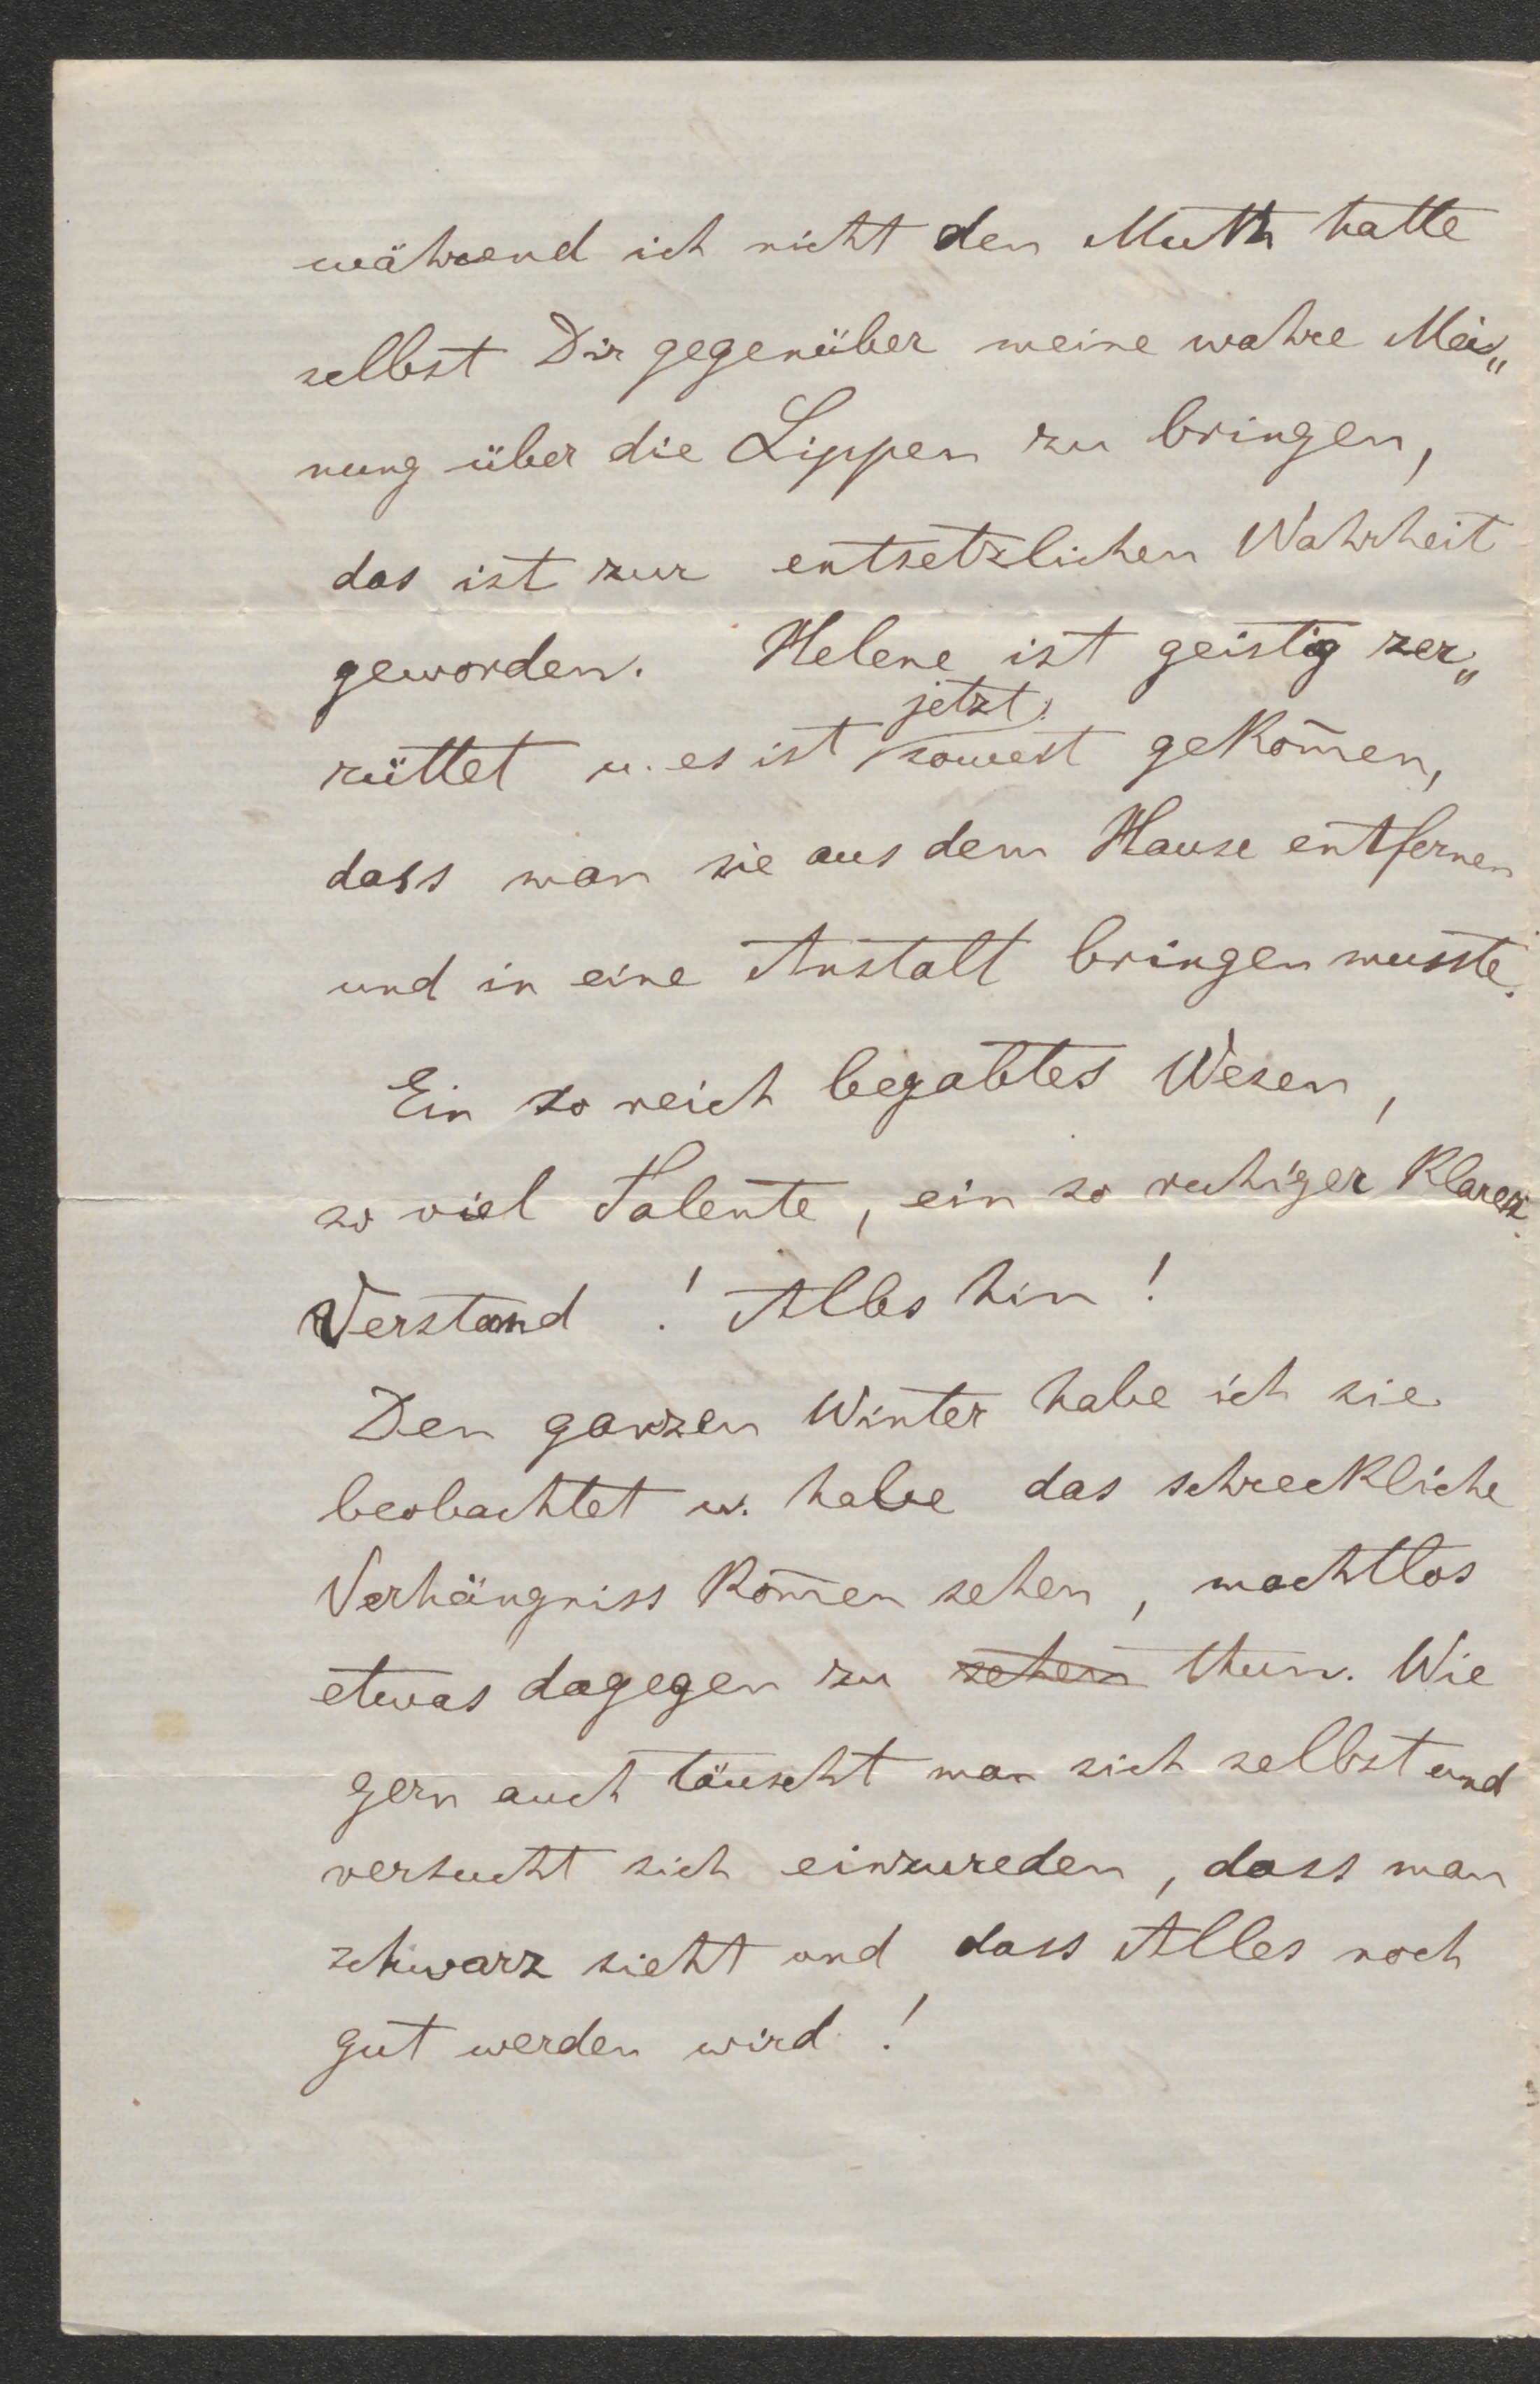 während ich nicht den Muth hatte
selbst Dir gegenüber meine wahre Mei„
nung über die Lippen zu bringen,
das ist zur entsetzlichen Wahrheit
geworden. Helene ist geistig zer„
jetzt
rüttet u. es ist soweit gekom̅en,
dass man sie aus dem Hause entfernen
und in eine Anstalt bringen musste.
Ein so reich begabtes Wesen,
so viel Talente, ein so ruhiger klarer
Verstand! Alles hin!
Den ganzen Winter habe ich sie
beobachtet u. habe das schreckliche
Verhängniss kom̅en sehen, machtlos
etwas dagegen zu sehen thun. Wie
gern auch täuscht man sich selbst und
versucht sich einzureden, dass man
schwarz sieht und dass Alles noch
gut werden wird!